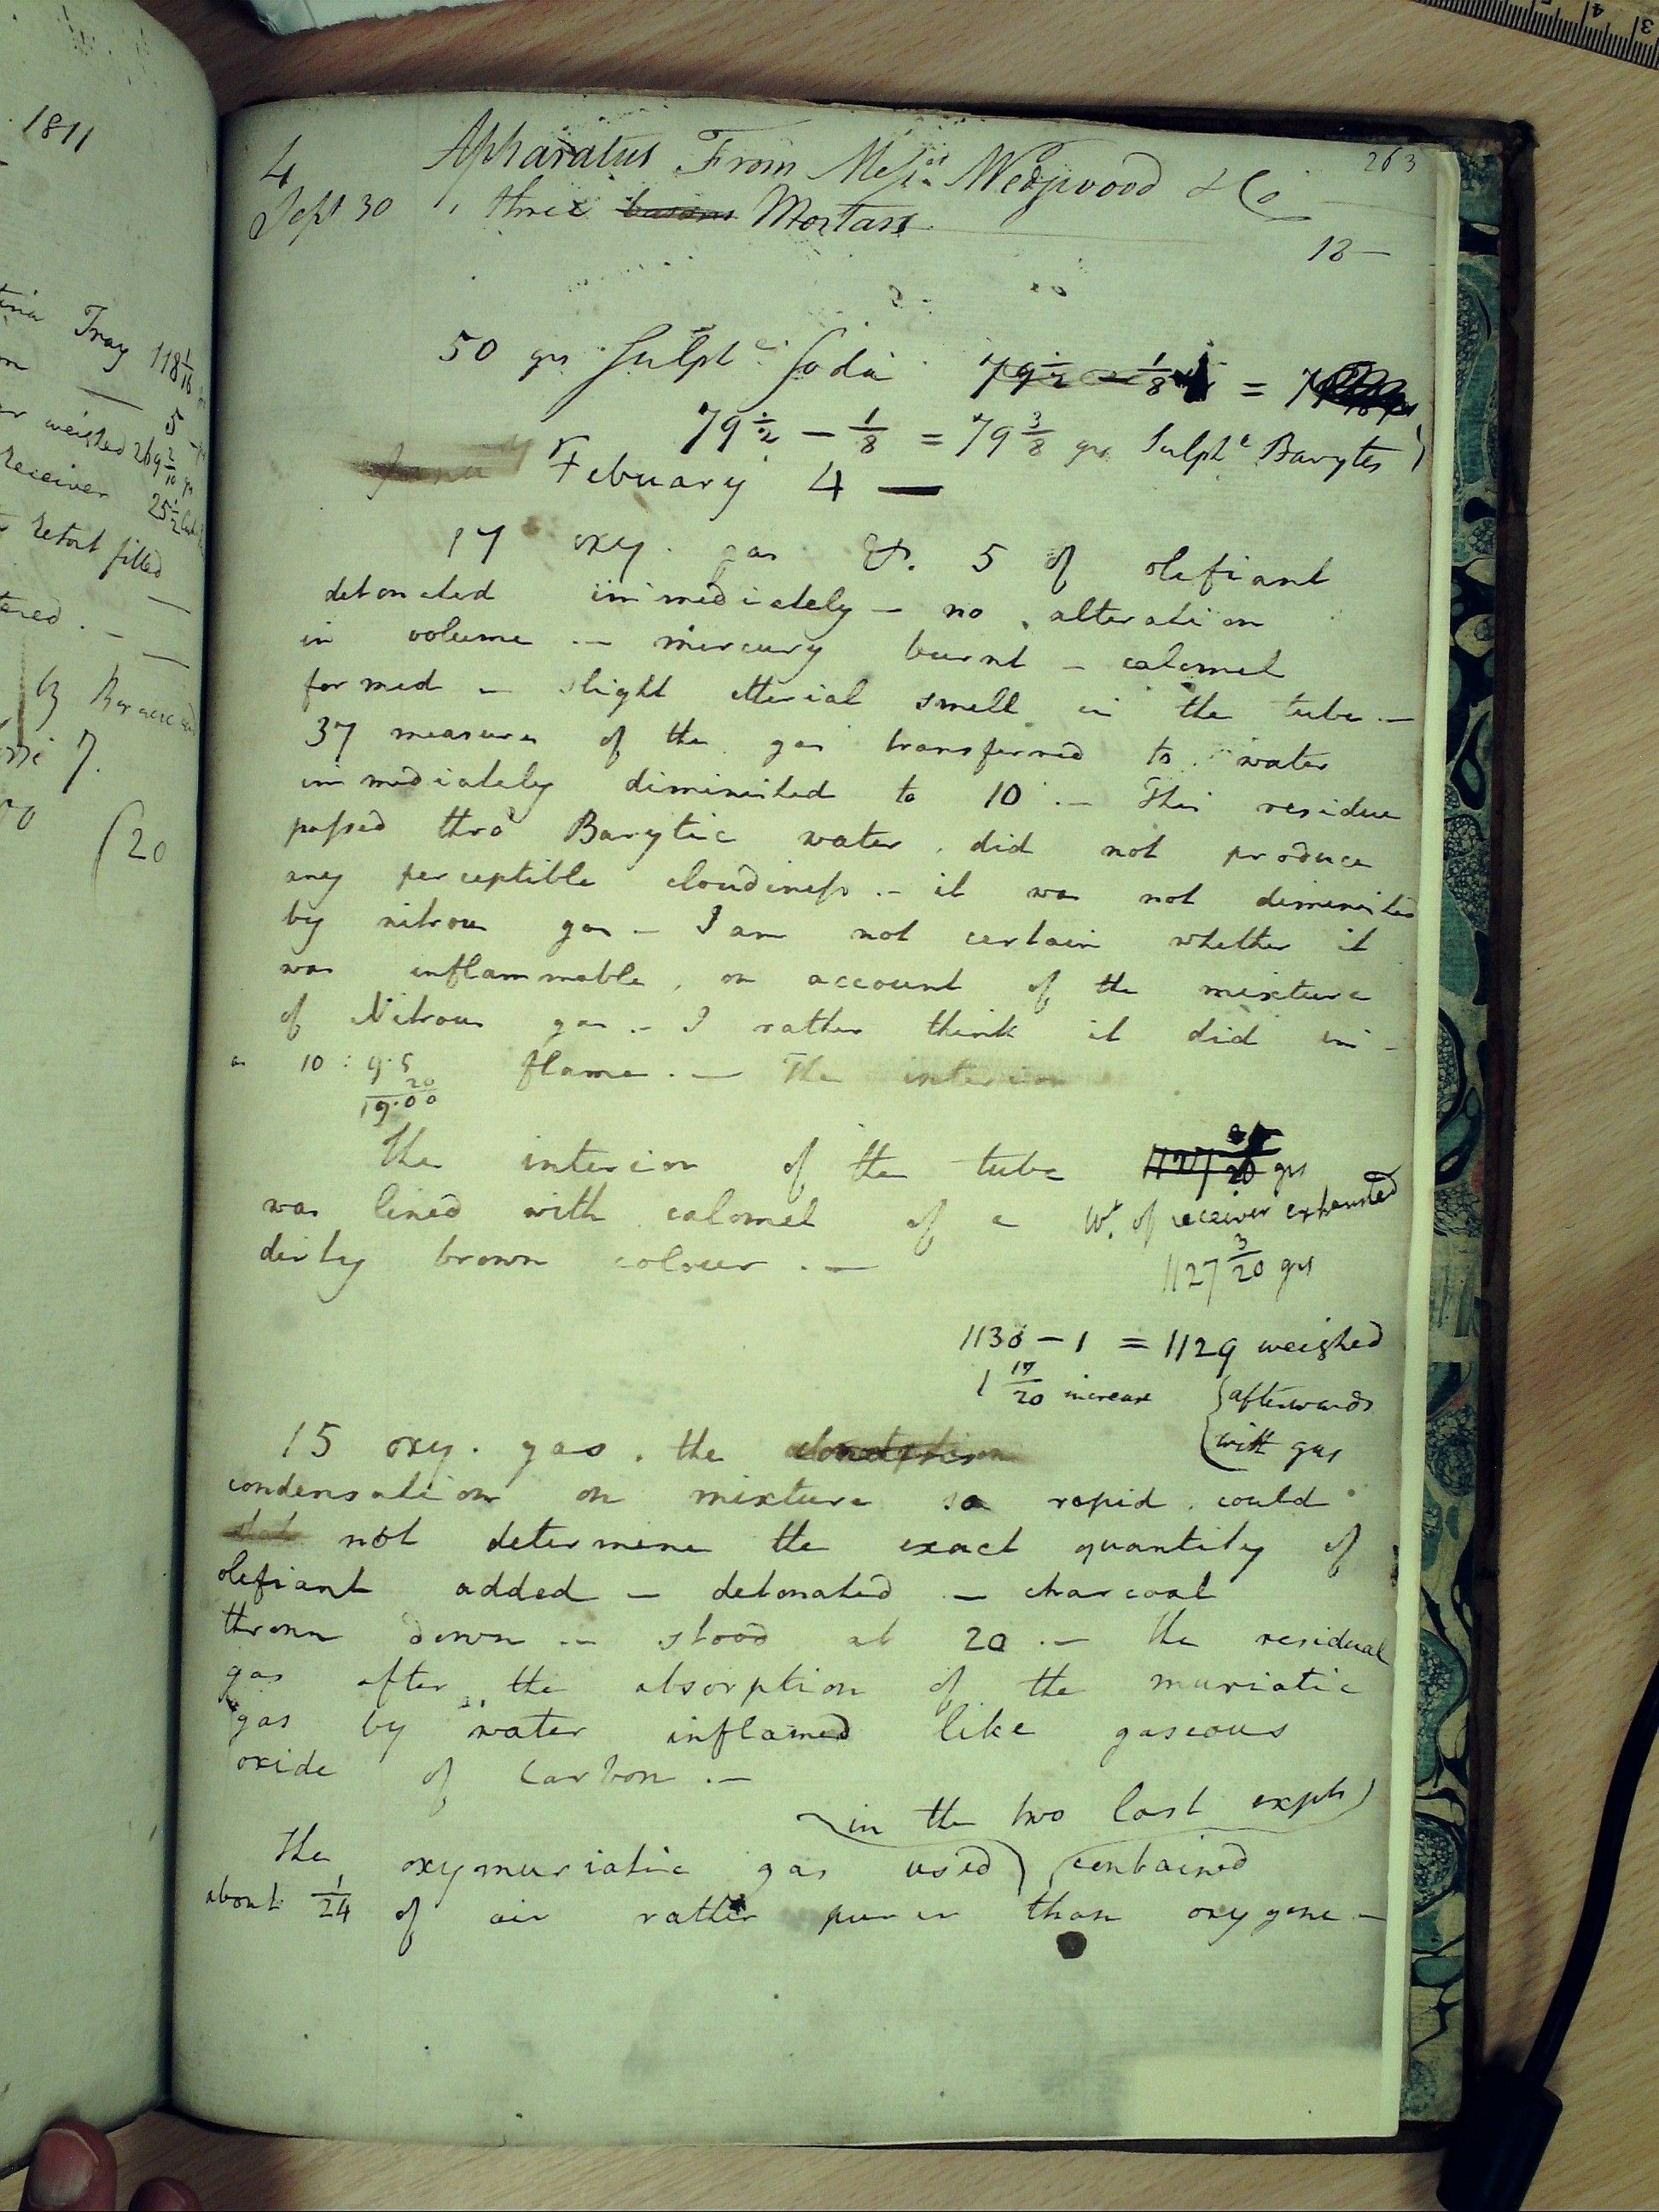 1811
Tray 118 1/16
5
weighed 269 2/10 gs
receiver 25 1/2
retort filled
by
7.
(20
263
4 Apparatus From Messrs. Wedgwood & Co
Sept 30 , three basons Mortars
18 —
50 grs Sulphe. Soda 79 1/2 — 1/8 = 7
79 1/2 — 1/8 = 79 3/8 grs Sulphe Barytes
Febuary 4 —
17 oxy. gas & 5 of olefiant
detonated immediately — no alteration
in volume — mercury burnt — calomel
formed — slight etherial smell in the tube. —
37 measures of the gas transferred to water
immediately diminished to 10. — This residue
passed thro Barytic water did not produce
any perceptible cloudiness. — it was not diminished
by nitrous gas — I am not certain whether it
was inflammable, on account of the mixture
of Nitrous gas. — I rather think it did in-
as 10 : 9.5 flame. — The interior
20
19.00
The interior of the tube 1127 /20 grs
was lined with calomel of a Wt. of receiver exhausted
dirty brown colour. — 1127 3/20 grs
1130 — 1 = 1129 weighed
1 17/20 increase afterwards
with gas
15 oxy. gas, the
condensation on mixture so rapid could
not determine the exact quantity of
olefiant added — detonated — charcoal
thrown down — stood at 20. — the residual
gas after the absorption of the muriatic
gas by water inflamed like gaseous
oxide of carbon. —
in the two last expts
The oxymuriatic gas used contained
about 1/24 of air rather purer than oxygene —